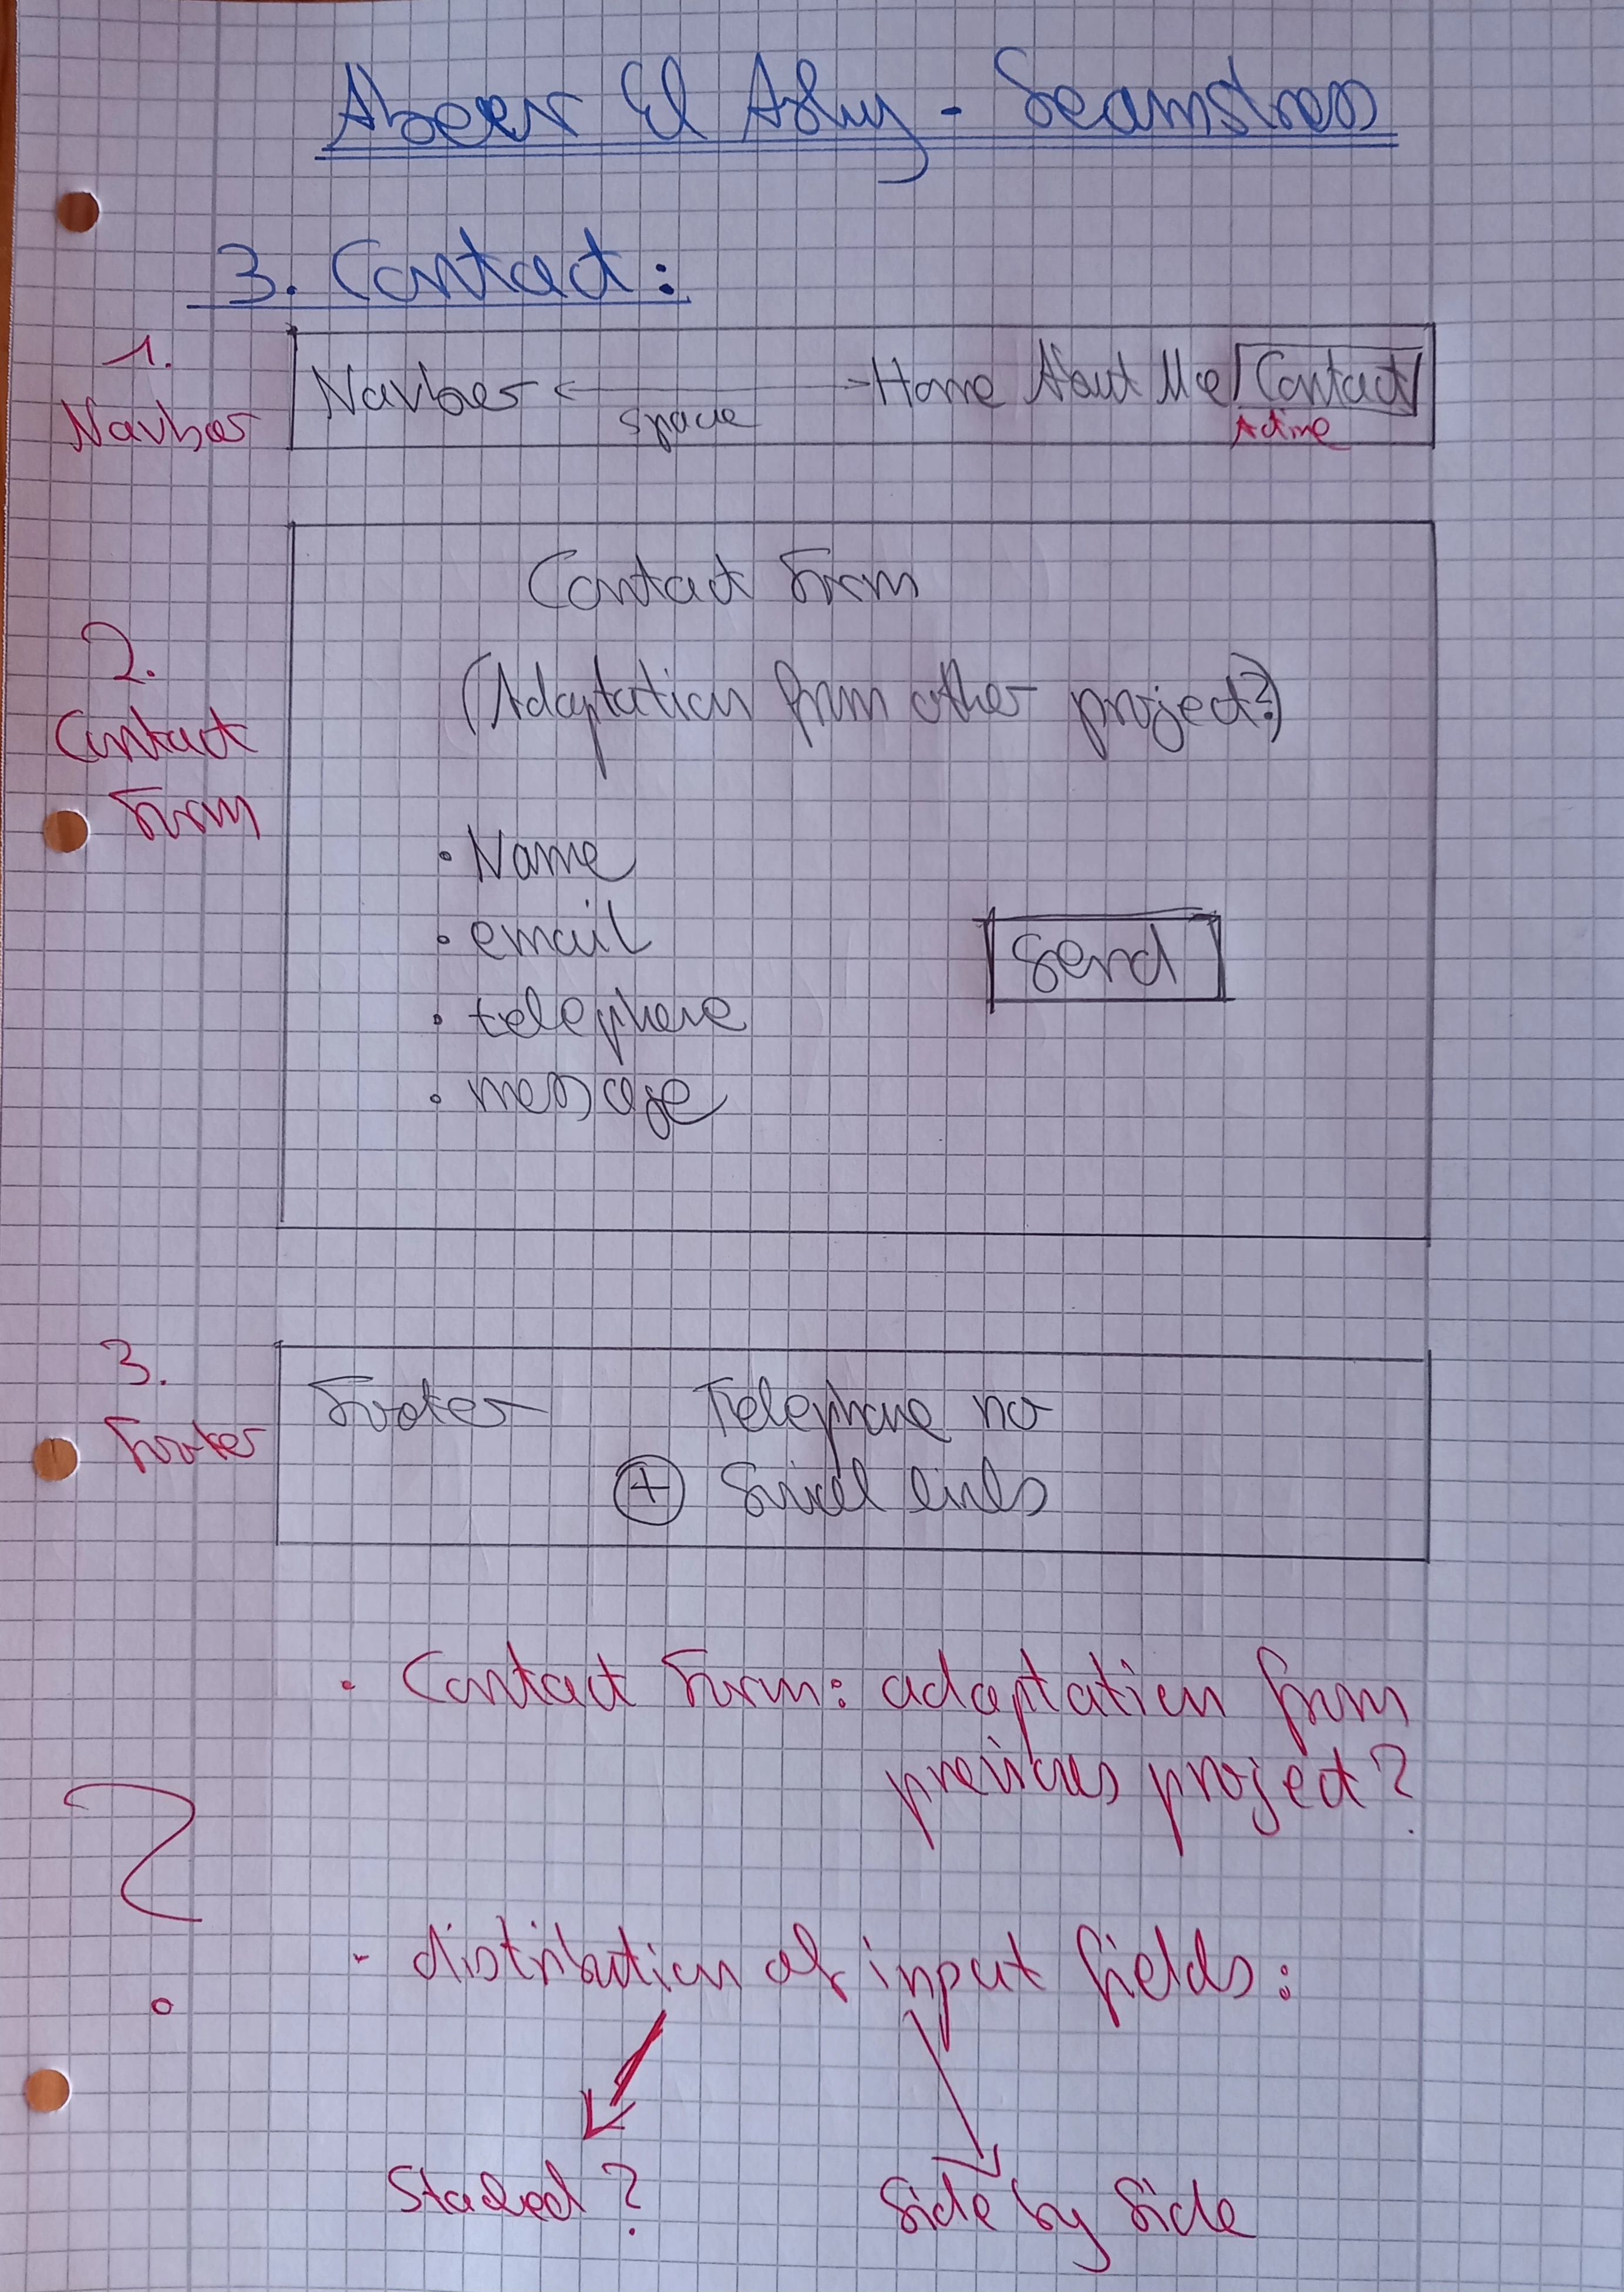 Abeer El Azhry - Seamstress
3. Contact:
1.
Navbar
Navbar space Home About Me Contact
Active
2.
Contact
Form
Contact Form
(Adaptation from other project?)
• Name
• email
• telephone
• message
Send
3.
Footer
Footer Telephone no
+ Social links
• Contact Form: adaptation from
previous project?
?
- distribution of input fields:
Stacked? Side by Side